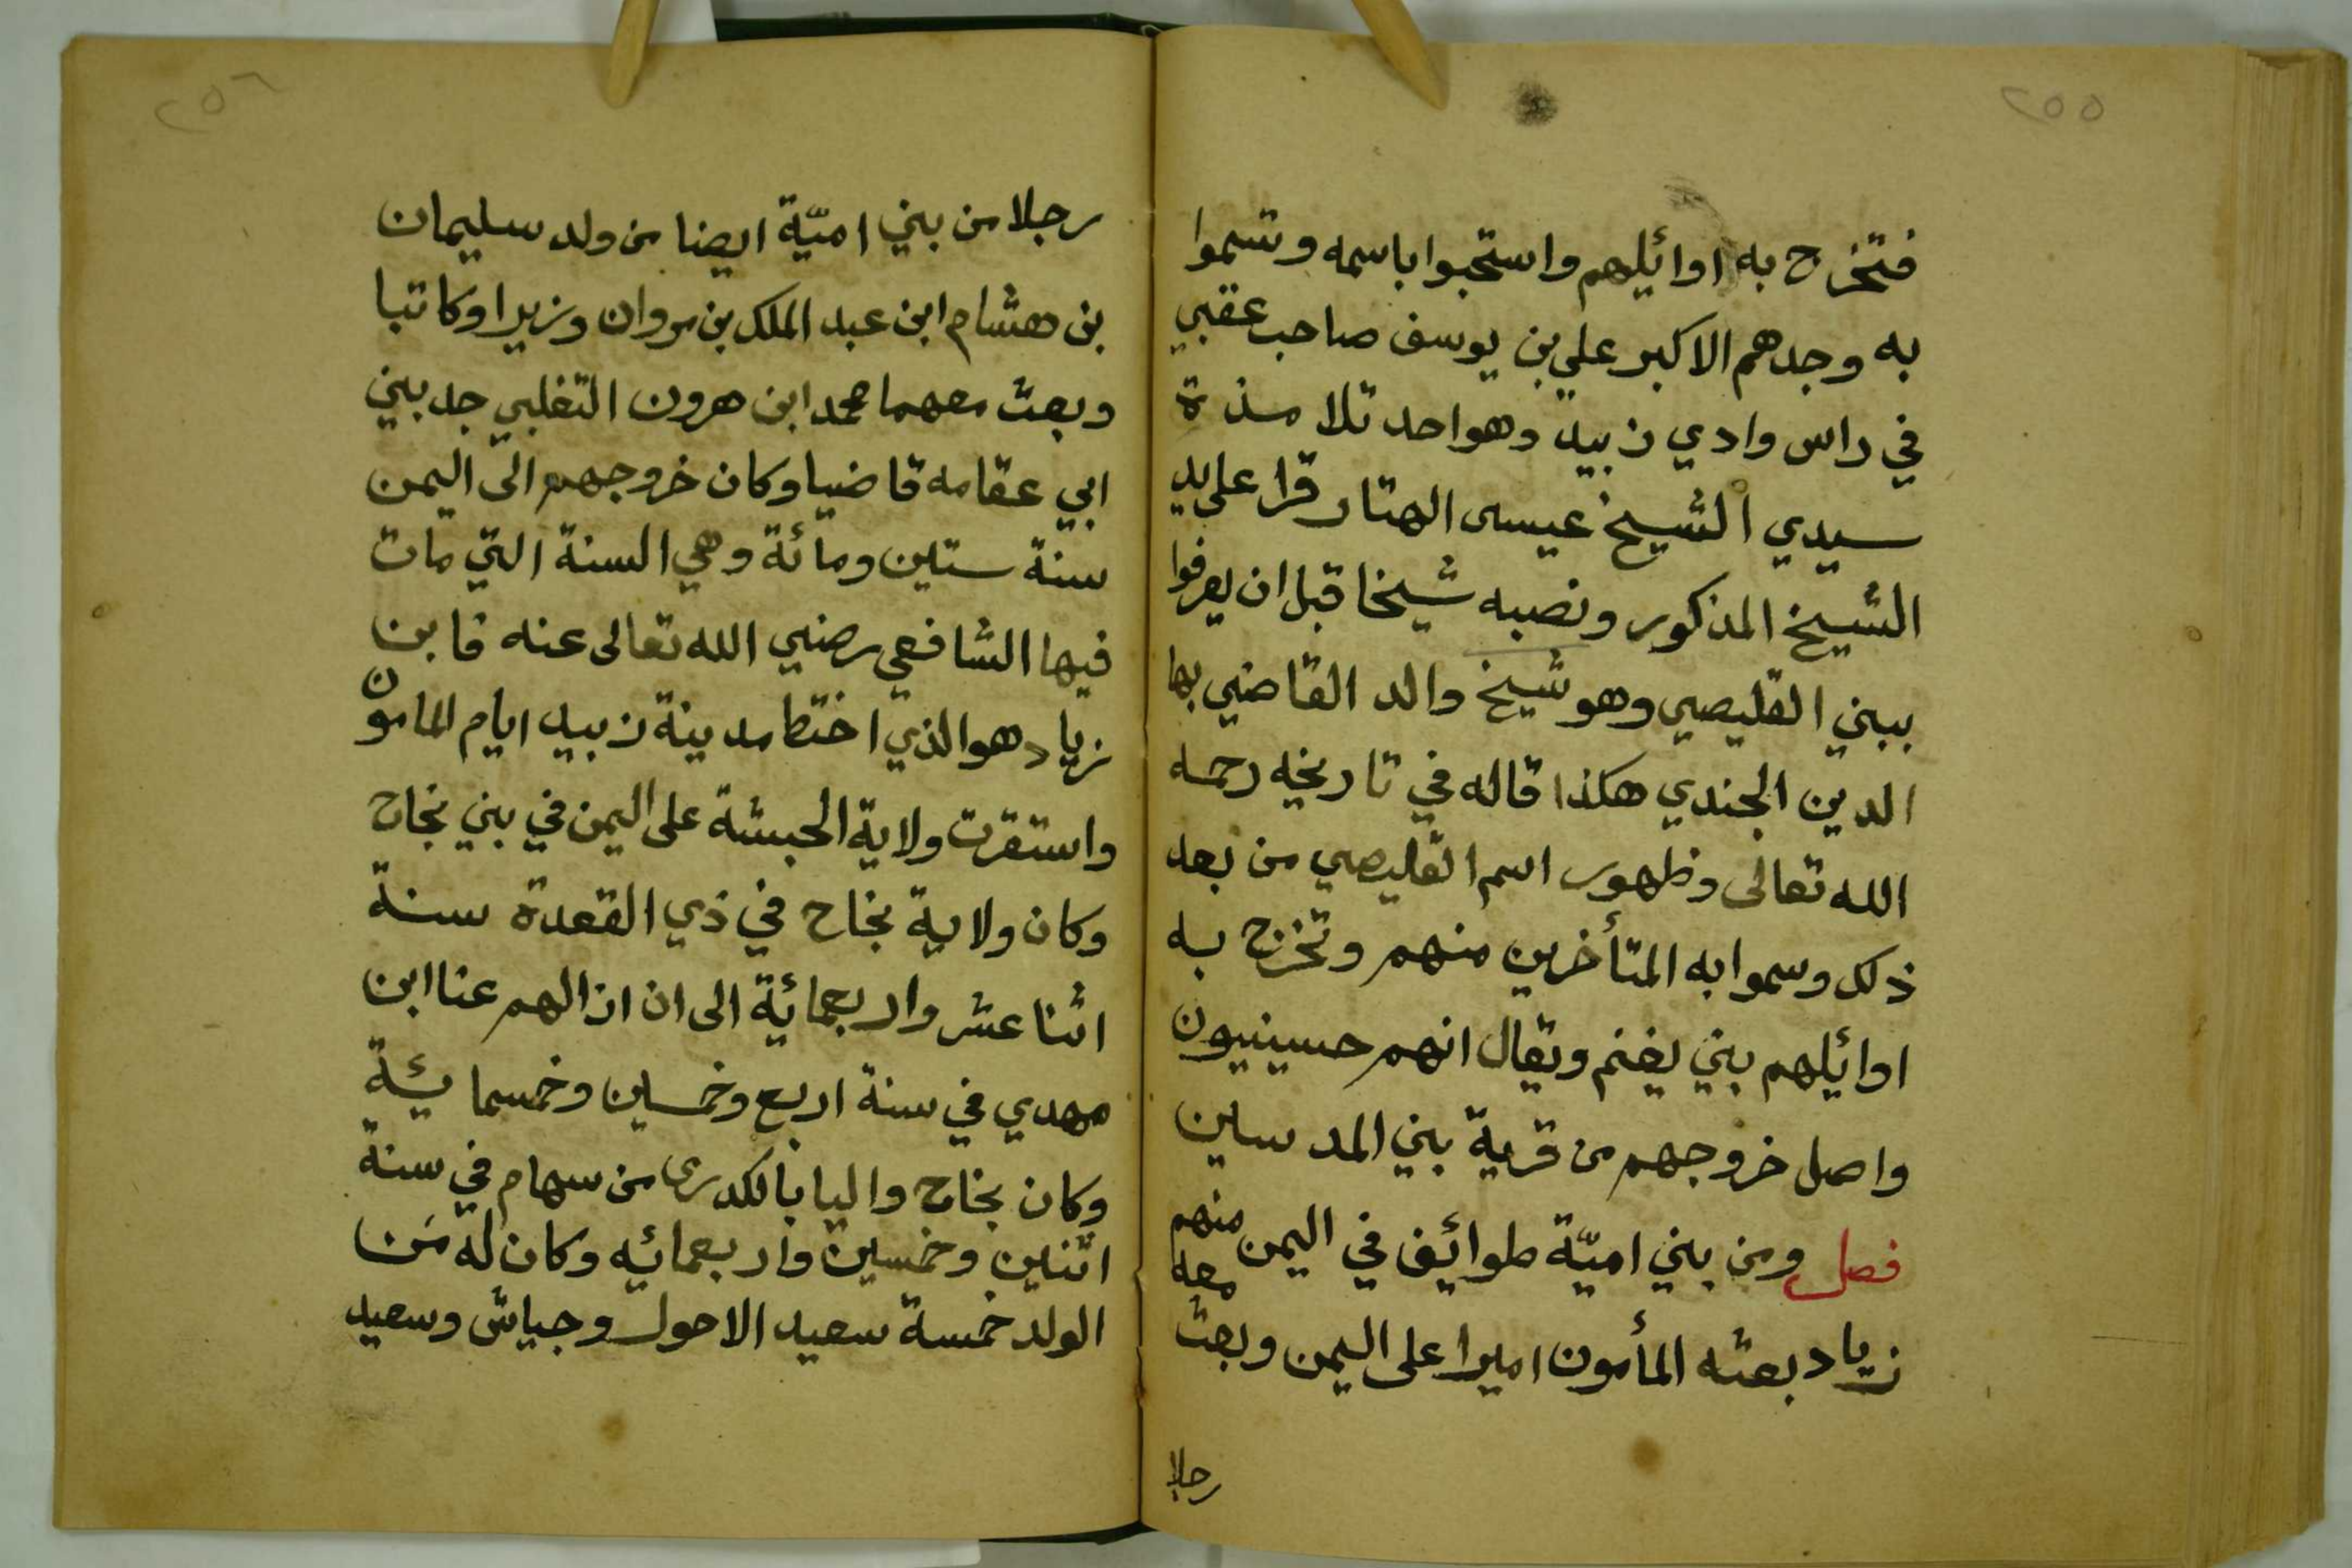 ٢٥٥
فتخرج به اوائلهم واستحبوا باسمه وتسموا
به وجدهم الاكبر علي بن يوسف صاحب عقبي
في راس وادي زبيد وهو احد تلامذة
سيدي الشيخ عيسى الهتار قرا على يد
الشيخ المذكور ونصبه شيخا قبل ان يعرفوا
ببني القليصي وهو شيخ والد القاضي بها
الدين الجندي هكذا قاله في تاريخه رحمه
الله تعالى وظهور اسم القليصي من بعد
ذلك وسموا به المتأخرين منهم وتخرج به
اوائلهم بني يغنم ويقال انهم حسينيون
واصل خروجهم من قرية بني المدسين
فصل ومن بني اميّة طوائف في اليمن منهم
زياد بعثه المأمون اميرا على اليمن وبعث معه
رجلا
٢٥٦
رجلا من بني اميّة ايضا من ولد سليمان
بن هشام ابن عبد الملك بن مروان وزيرا وكاتبا
وبعث معهما محمد ابن هرون التغلبي جد بني
ابي عقامه قاضيا وكان خروجهم الى اليمن
سنة ستين ومائة وهي السنة التي مات
فيها الشافعي رضي الله تعالى عنه فابن
زياد هو الذي اختط مدينة زبيد ايام المامون
واستقرت ولاية الحبشة على اليمن في بني نجاح
وكان ولاية نجاح في ذي القعدة سنة
اثنا عشر واربعمائة الى ان ازالهم عنا ابن
مهدي في سنة اربع وخمسين وخمسمايئة
وكان نجاح واليا بالكدرى من سهام في سنة
اثنين وخمسين واربعمائه وكان له مَن
الولد خمسة سعيد الاحول وجياش وسعيد